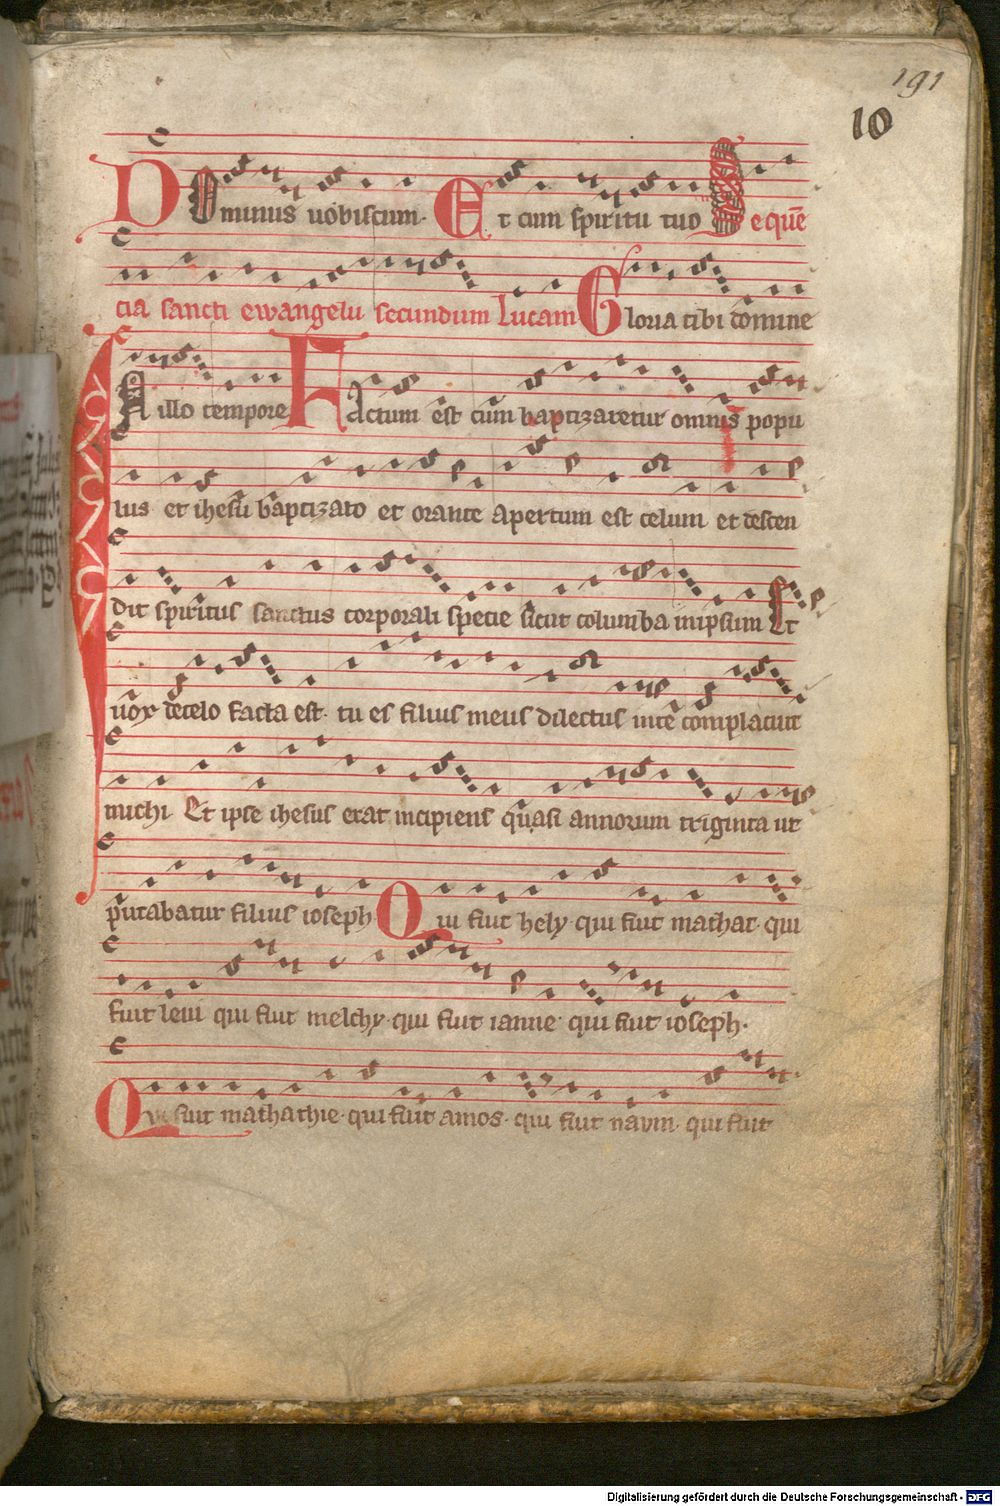 191
10
Dominus vobiscum. Et cum spiritu tuo Sequē
cia sancti ewangelii secundum Lucam Gloria tibi domine
In illo tempore Factum est cum baptizaretur omnis popu
lus et ihesu baptizato et orante apertum est celum et descen
dit spiritus sanctus corporali specie sicut columba in ipsum Et
vox de celo facta est. tu es filius meus dilectus in te complacuit
michi. Et ipse ihesus erat incipiens quasi annorum triginta ut
putabatur filius ioseph Qui fuit hely. qui fuit mathat. qui
fuit levi qui fuit melchy. qui fuit ianne. qui fuit ioseph.
Qui fuit mathathie. qui fuit amos. qui fuit naum. qui fuit
Digitalisierung gefördert durch die Deutsche Forschungsgemeinschaft - DFG